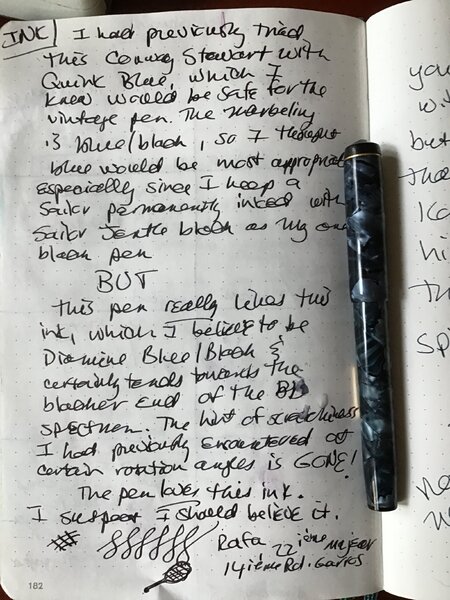 INK I had previously tried
this Conway Stewart with
Quink Blue, which I
knew would be safe for the
vintage pen. The marbeling
is blue/black, so I thought
blue would be most appropriate
especially since I keep a
Sailor permanently inked with
Sailor Jentle black as my one
black pen
BUT
This pen really likes this
ink, which I believe to be
Diamine Blue/Black &
certainly tends towards the
blacker end of the
spectrum. The hint of scratchiness
I had previously encountered at
certain rotation angles is GONE!
The pen loves this ink.
I suspect I should believe it.
Rafa 22ième majeur
14ième Rd. Garros
182
you
wi
but
tha
hi
Th
sp